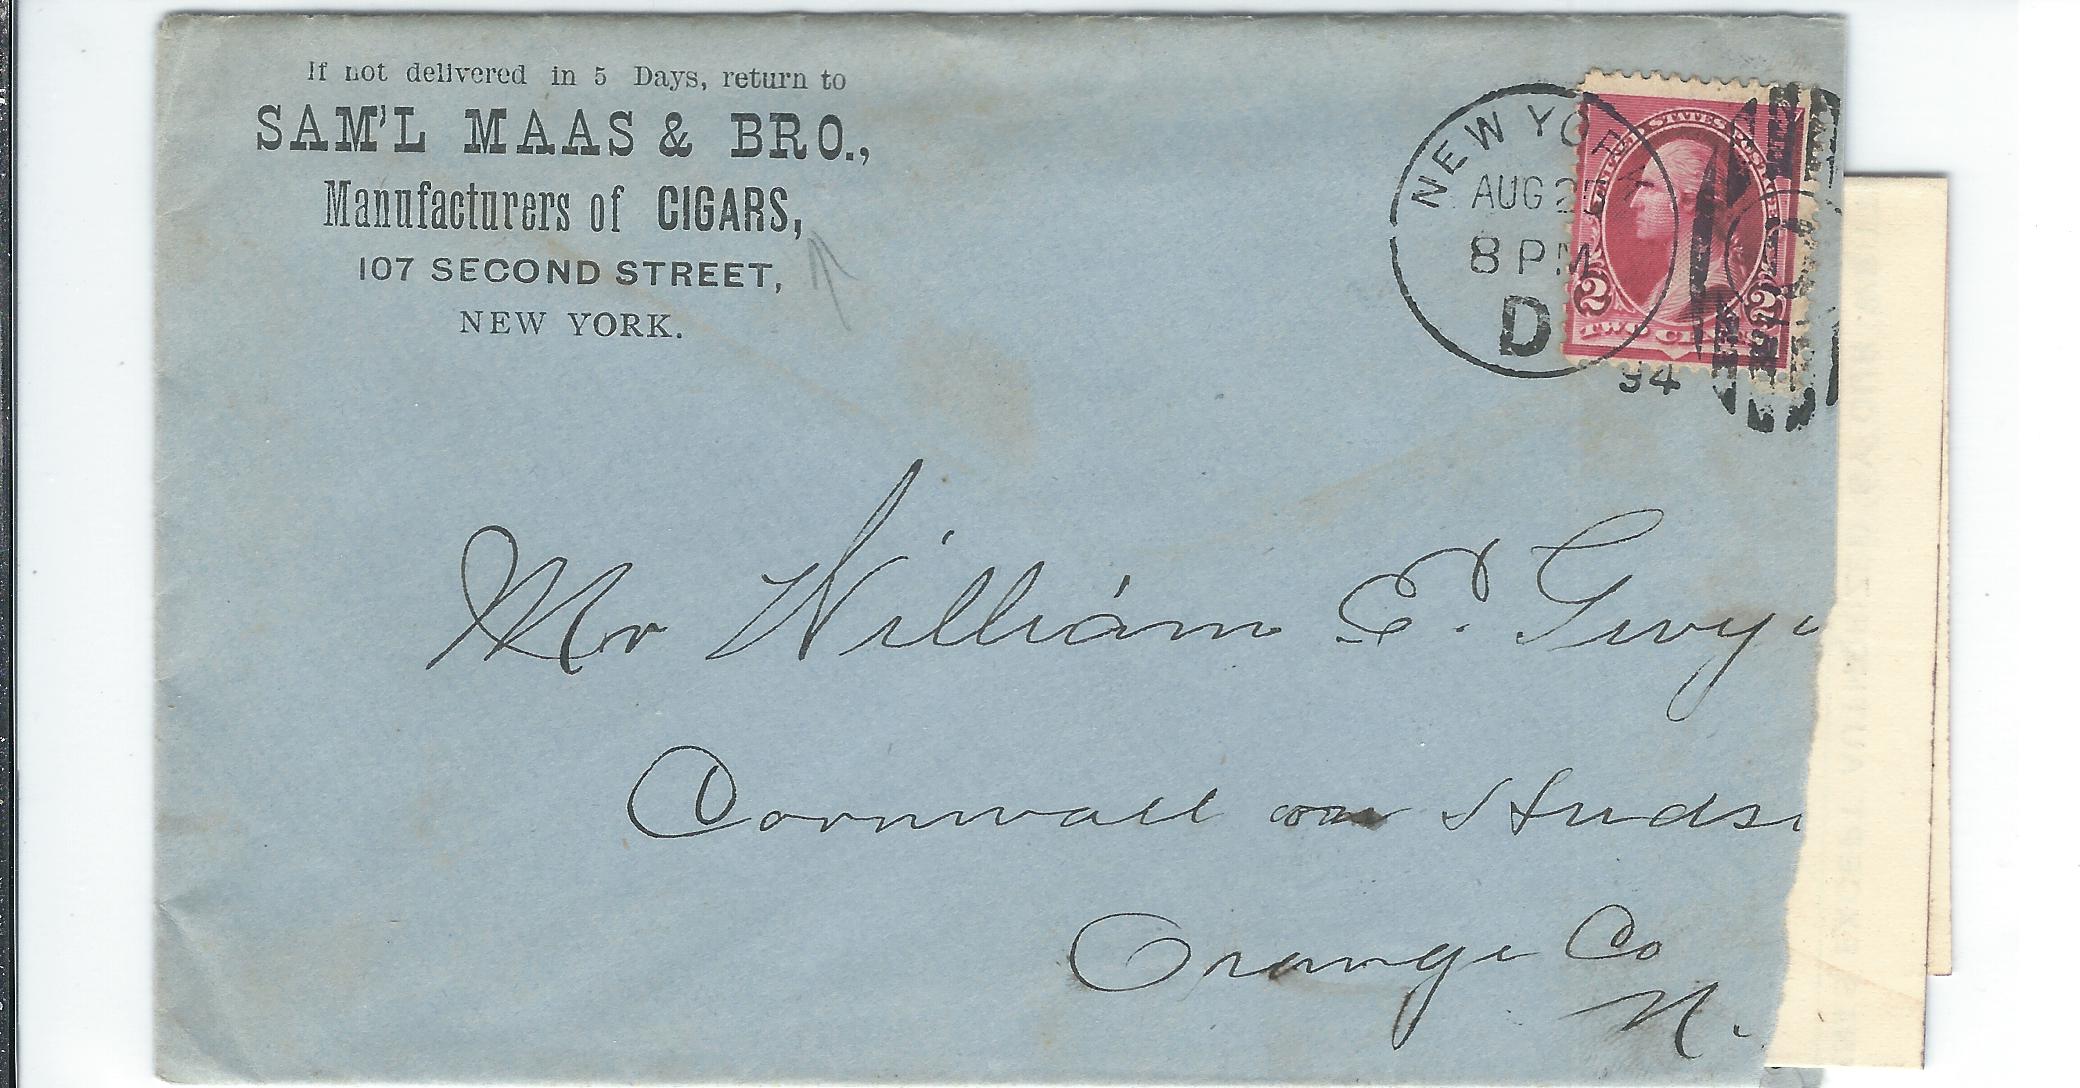 If not delivered in 5 Days, return to
SAM'L MAAS & BRO.,
Manufacturers of CIGARS,
107 SECOND STREET,
NEW YORK.
NEW YORK
AUG 25
8 PM
D
94
UNITED STATES POSTAGE
2 2
TWO CENTS
Mr William E. Gwyn
Cornwall on Hudso
Orange Co
N.